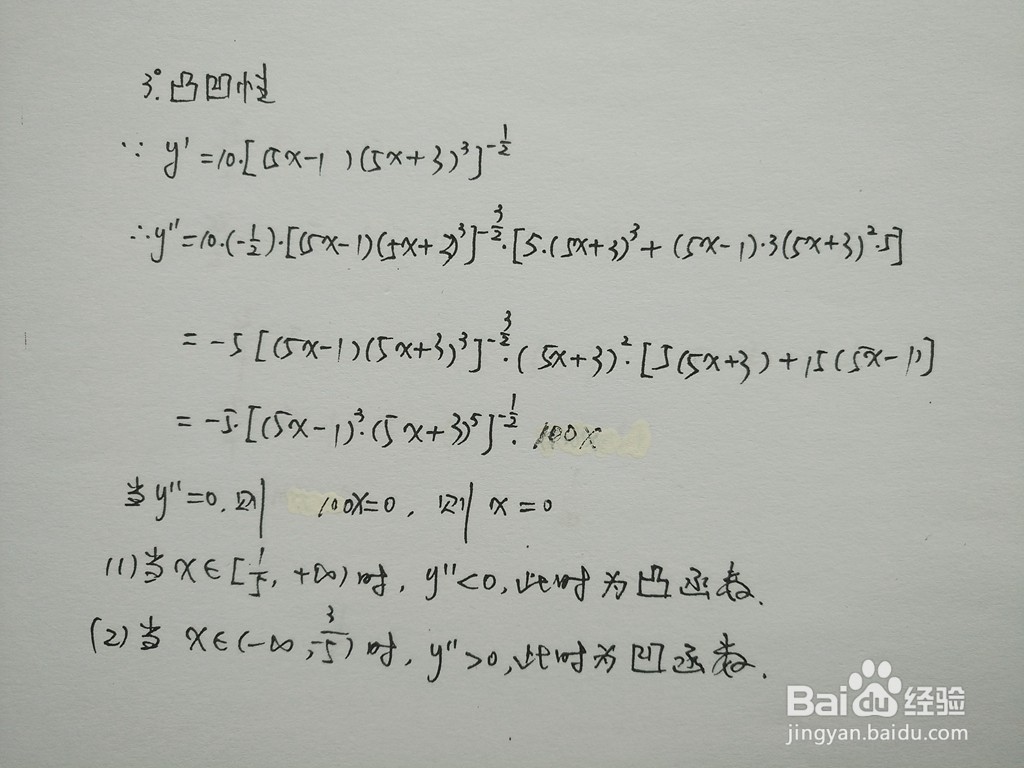 3°.凸凹性
∵ y'=10·[(5x-1)(5x+3)³]^{-1/2}
∴y''=10·(-1/2)·[(5x-1)(5x+3)³]^{-3/2}·[5·(5x+3)³+(5x-1)·3(5x+3)²·5]
=-5[(5x-1)(5x+3)³]^{-3/2}·(5x+3)²·[5(5x+3)+15(5x-1)]
=-5·[(5x-1)³·(5x+3)⁵]^{-1/2}·100x
当y''=0,则 100x=0,则 x=0
(1)当x∈[1/5,+∞)时,y''<0,此时为凸函数.
(2)当 x∈(-∞,-3/5)时,y''>0,此时为凹函数.
Baidu经验
jingyan.baidu.com